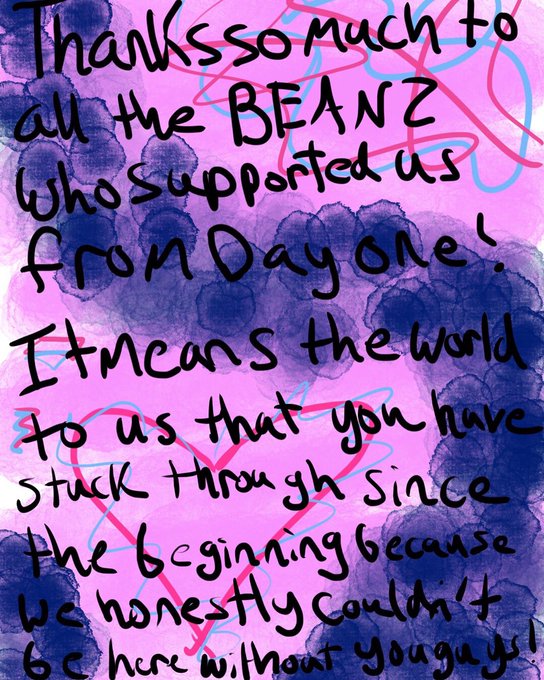 Thanks so much to
all the BEANZ
who supported us
from Day one!
It means the world
to us that you have
stuck through since
the beginning because
we honestly couldn't
be here without you guys!